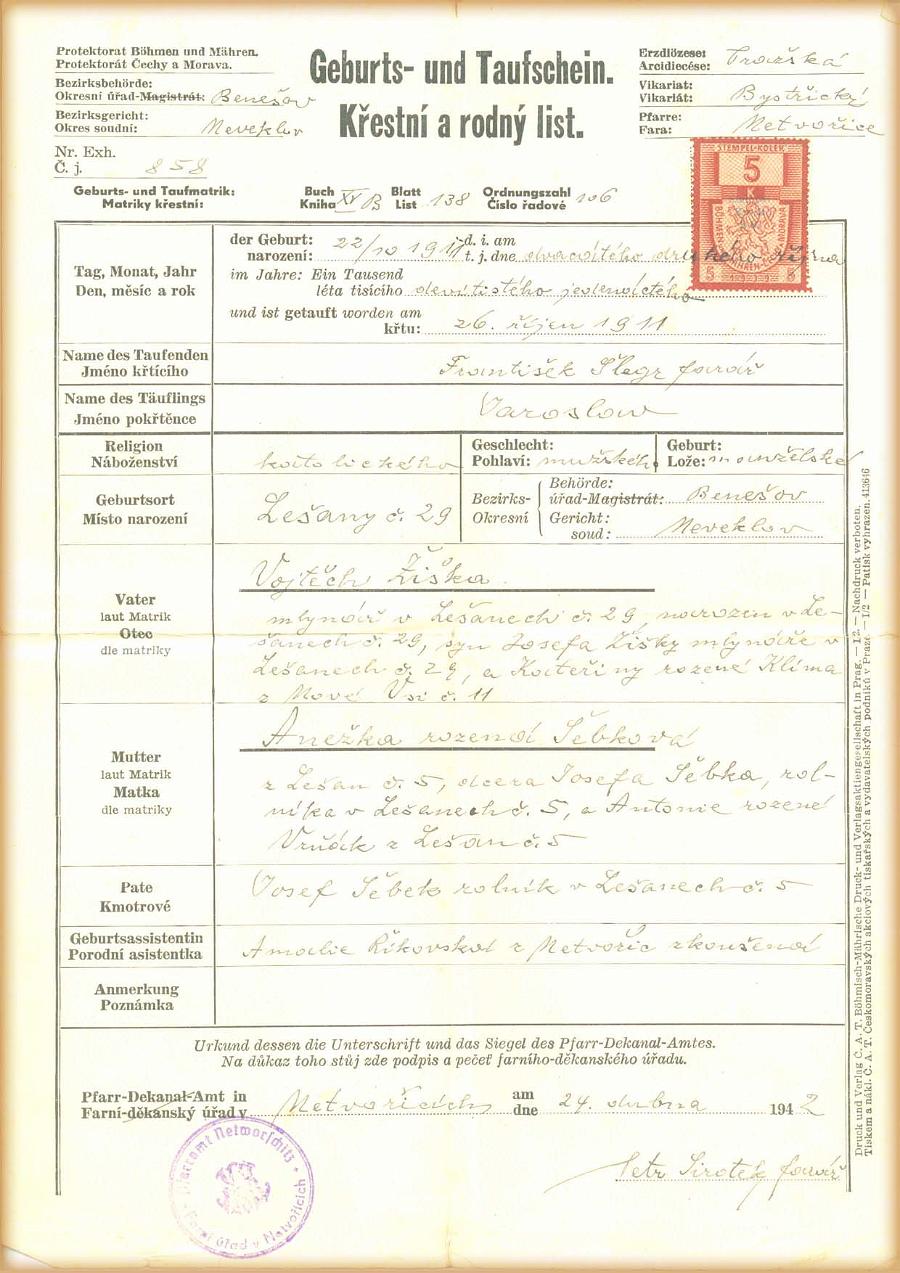 Protektorat Böhmen und Mähren.
Protektorát Čechy a Morava.
Bezirksbehörde:
Okresní úřad-Magistrát: Benešov
Bezirksgericht:
Okres soudní: Neveklov
Nr. Exh.
Č. j. 858
Geburts- und Taufschein.
Křestní a rodný list.
Erzdiözese:
Arcidiecése: Pražská
Vikariat:
Vikariát: Bystřický
Pfarre:
Fara: Netvořice
Geburts- und Taufmatrik:
Matriky křestní:
Buch Blatt Ordnungszahl
Kniha XV B List 138 Číslo řadové 106
STEMPEL-KOLEK
5
K
Tag, Monat, Jahr
Den, měsíc a rok
der Geburt: d. i. am
narození: 22/10 1911 t. j. dne dvacátého druhého října
im Jahre: Ein Tausend
léta tisícího devítistého jedenáctého
und ist getauft worden am
křtu: 26. říjen 1911
Name des Taufenden
Jméno křtícího
František Šlegr farář
Name des Täuflings
Jméno pokřtěnce
Jaroslav
Religion
Náboženství
katolického
Geschlecht:
Pohlaví: mužského
Geburt:
Lože: manželské
Geburtsort
Místo narození
Lešany č. 29
Bezirks-
Okresní
Behörde:
úřad-Magistrát: Benešov
Gericht:
soud: Neveklov
Vater
laut Matrik
Otec
dle matriky
Vojtěch Žiška
mlynář v Lešanech č. 29, narozen v Le-
šanech č. 29, syn Josefa Žišky mlynáře v
Lešanech č. 29, a Kateřiny rozené Klíma
z Nové Vsi č. 11
Mutter
laut Matrik
Matka
dle matriky
Anežka rozená Šebková
z Lešan č. 5, dcera Josefa Šebka, rol-
níka v Lešanech č. 5, a Antonie rozené
z Lešan č. 5
Pate
Kmotrové
Josef Šebek rolník v Lešanech č. 5
Geburtsassistentin
Porodní asistentka
Amalie Říkovská z Netvořic zkoušená
Anmerkung
Poznámka
Urkund dessen die Unterschrift und das Siegel des Pfarr-Dekanal-Amtes.
Na důkaz toho stůj zde podpis a pečeť farního-děkanského úřadu.
Pfarr-Dekanal-Amt in
Farní-děkanský úřad v Netvořicích
am
dne 24. dubna 1942
Petr Sirotek farář
Pfarramt Networschitz
Farní úřad v Netvořicích
Druck und Verlag Č. A. T. Böhmisch-Mährische Druck- und Verlagsaktiengesellschaft in Prag. — I/2 — Nachdruck verboten.
Tiskem a nákl. Č. A. T. Českomoravských akciových tiskařských a vydavatelských podniků v Praze — I/2 — Patisk vyhrazen. 413646